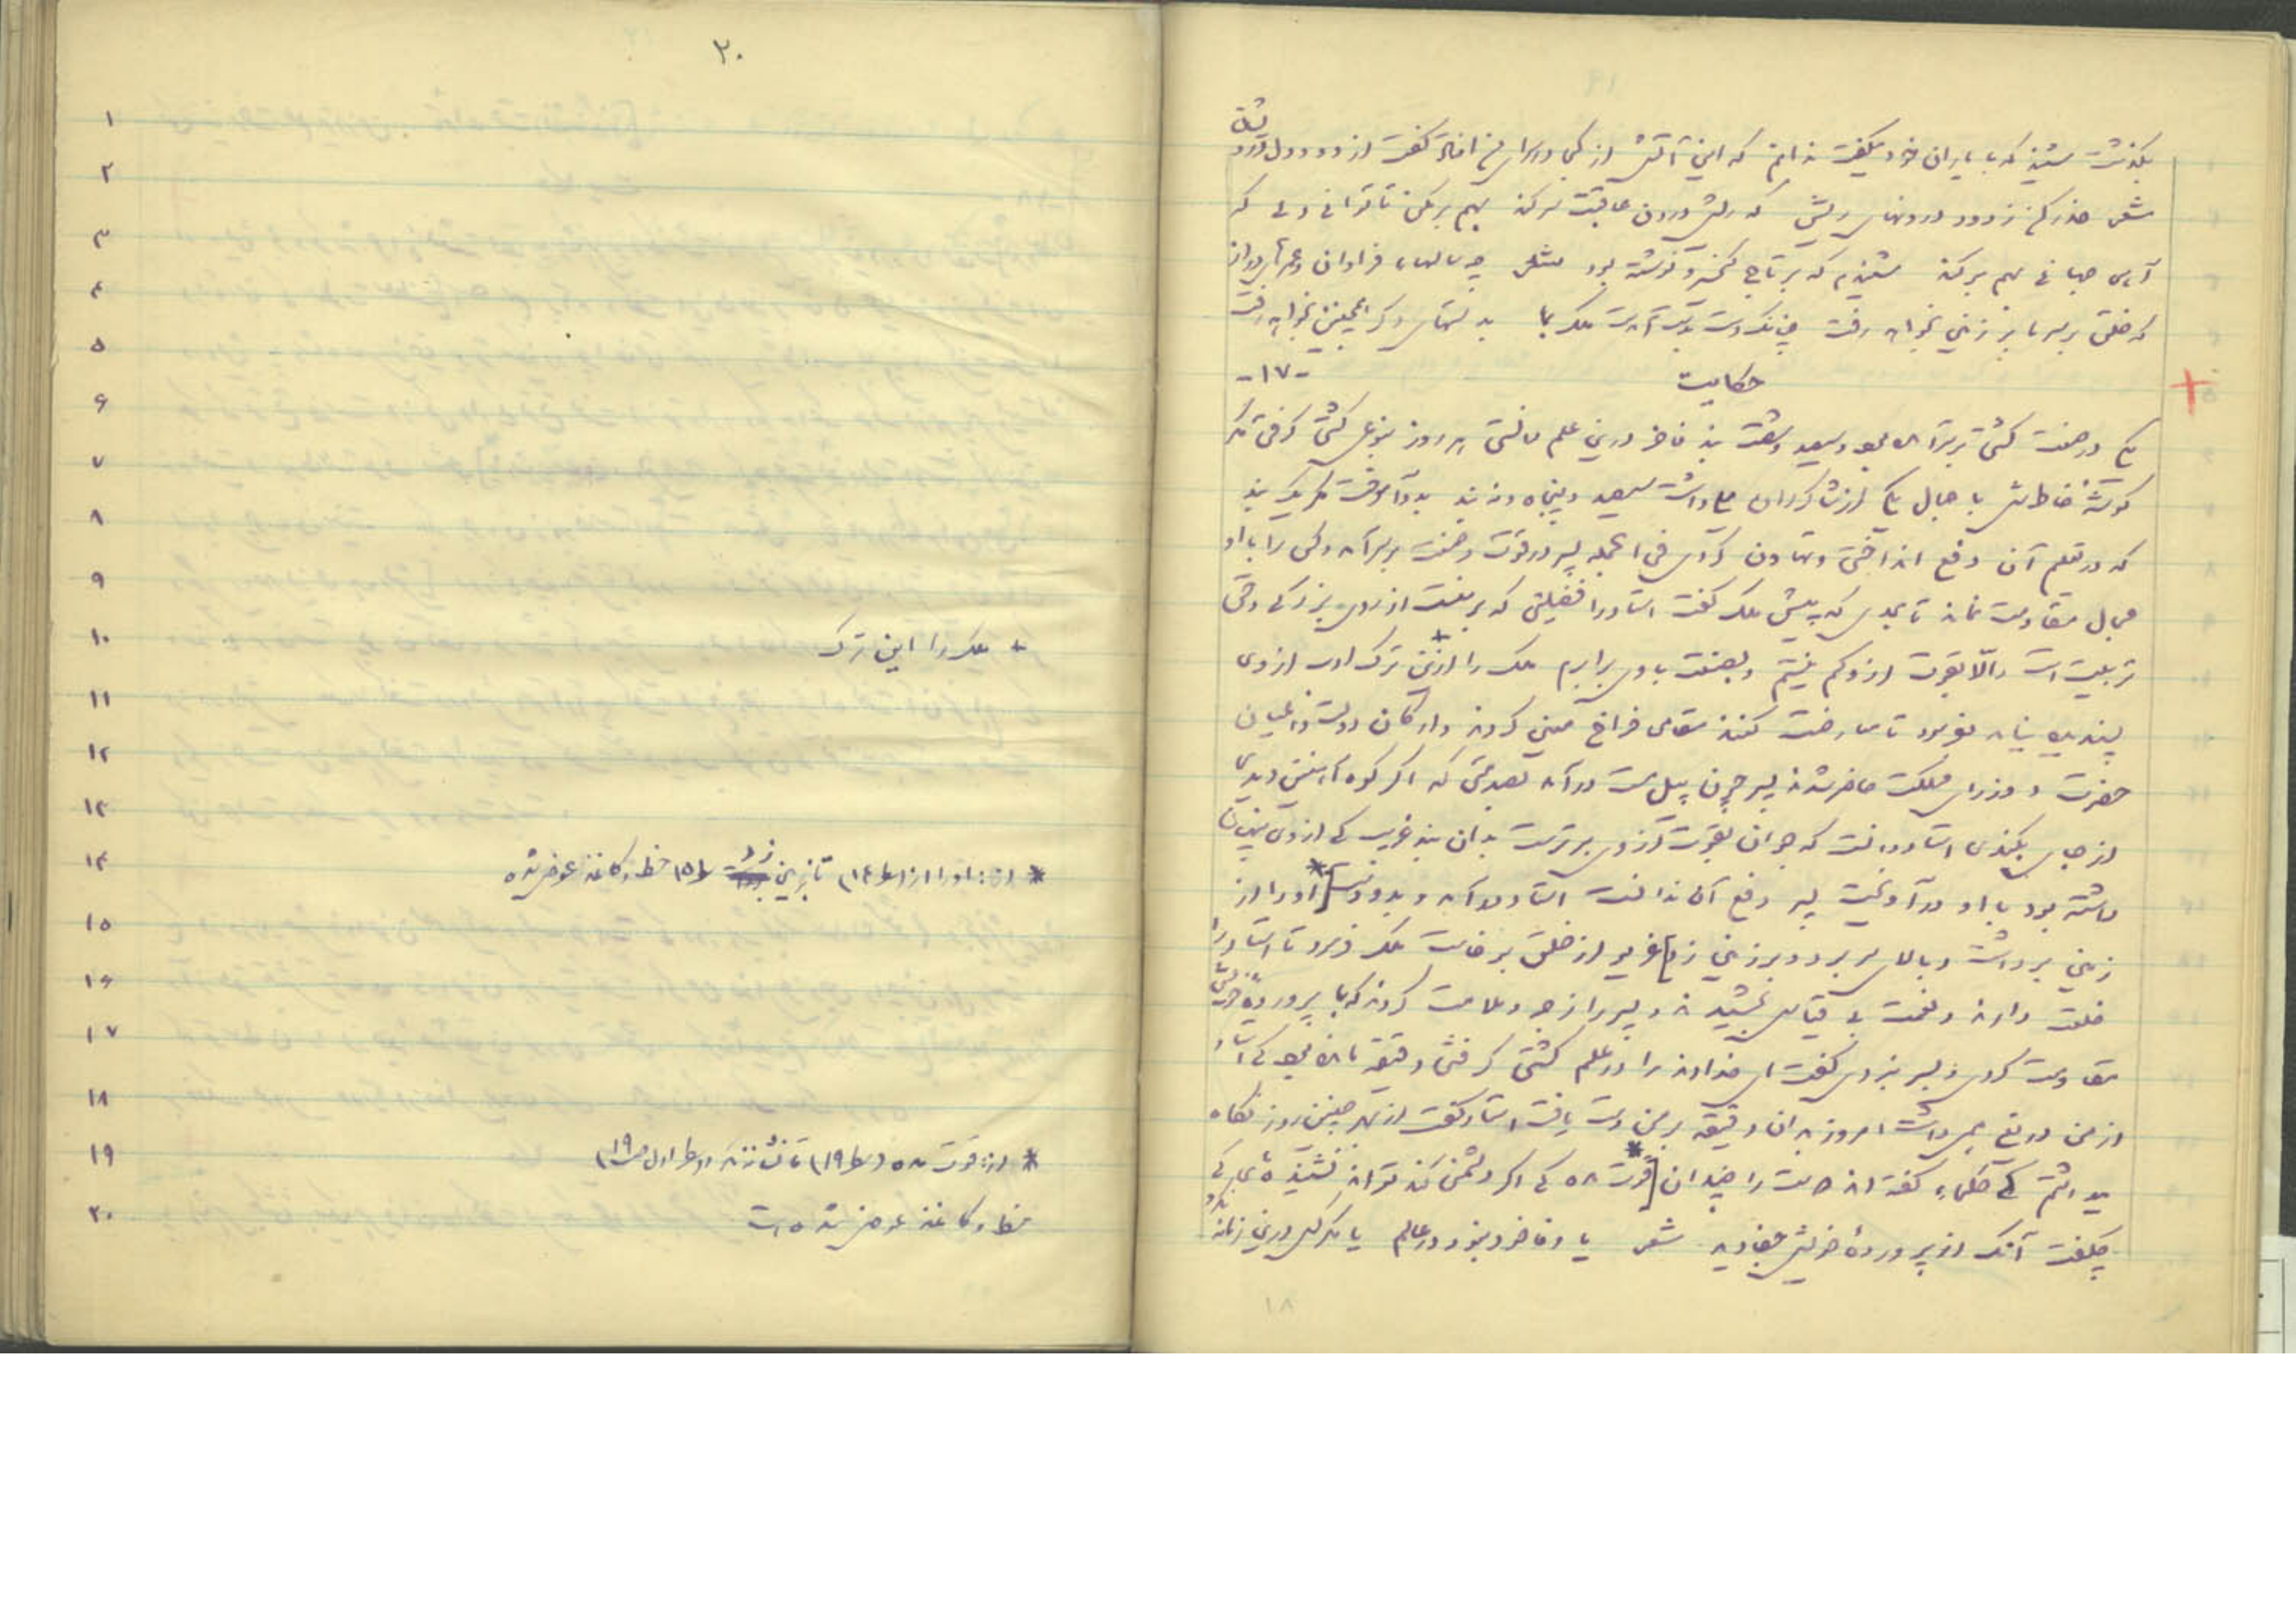 بگذشت شنید که با یاران خود میگفت ندانم که این آتش از کجا در سرای من افتاد گفت از دود دل درویشان
شعر حذر کن ز دود درونهای ریش که ریش درون عاقبت سر کند بهم بر مکن تا توانی دلی که
آهی جهانی بهم بر کند شنیدم که بر تاج کیخسرو نوشته بود شعر چه سالهاء فراوان و عمرهای دراز
که خلق بر سر ما بر زمین بخواهد رفت چنانک دست بدست آمدست ملک بما بدستهای دگر همچنین بخواهد رفت
حکایت -۱۷-
یکی در صنعت کشتی بسر آمده بود و سیصد و شصت بند فاخر درین علم دانستی هر روز بنوعی کشتی گرفتی مگر
گوشهٔ خاطرش با جمال یکی از شاگردان میلی داشت سیصد و پنجاه و نه بند بدو آموخت مگر یک بند
که در تعلیم آن دفع انداختی و تهاون کردی فی الجمله پسر در قوت و صنعت بسر آمد و کس را با او
مجال مقاومت نماند تا بحدی که پیش ملک گفت استاد را فضیلتی که بر منست از روی بزرگی و حق
تربیت است والا بقوت ازو کم نیستم و بصنعت با وی برابرم ملک را ازین* ترک ادب از وی
پسندیده نیامد بفرمود تا مصارعت کنند مقامی فراخ معین کردند و ارکان دولت و اعیان
حضرت و وزرای مملکت حاضر شدند پسر چون پیل مست درآمد بصدمتی که اگر کوه آهنین بودی
از جای بکندی استاد دانست که جوان بقوت ازوی برترست بدان بند غریب که از وی پنهان
داشته بود با او درآویخت پسر دفع آن ندانست استاد درآمد و بدو دست [* او را از
زمین برداشت و بالای سر برد و بر زمین زد] غریو از خلق برخاست ملک فرمود تا استاد را
خلعت دادند و نعمت بی قیاس بخشیدند و پسر را زجر و ملامت کردند که با پروردهٔ خویش
مقاومت کردی و بسر نبردی گفت ای خداوند را در علم کشتی گرفتن دقیقهٔ مانده بود که استاد
از من دریغ همی داشت امروز بدان دقیقه بر من دست یافت استاد گفت از بهر چنین روز نگاه
میداشتم که حکماء گفته اند دوست را چندان [* قوت مده که اگر دشمنی کند تواند نشنیدهٔ که
چگفت آنک از پروردهٔ خویش جفا دید شعر یا وفا خود نبود در عالم یا مگر کس درین زمانه نکرد
۱۸
۲۰
۱
۲
۳
۴
۵
۶
۷
۸
۹
۱۰ + ملک را این ترک
۱۱
۱۲
۱۳
۱۴ * از: او را از (س ۱۴) تا بزمین زد س ۱۵ خط و کاغذ عوض شده
۱۵
۱۶
۱۷
۱۸
۱۹ * از: قوت مده (س ۱۹) تا نشاننده (س اول ص ۱۹)
۲۰ خط و کاغذ عوض شده است